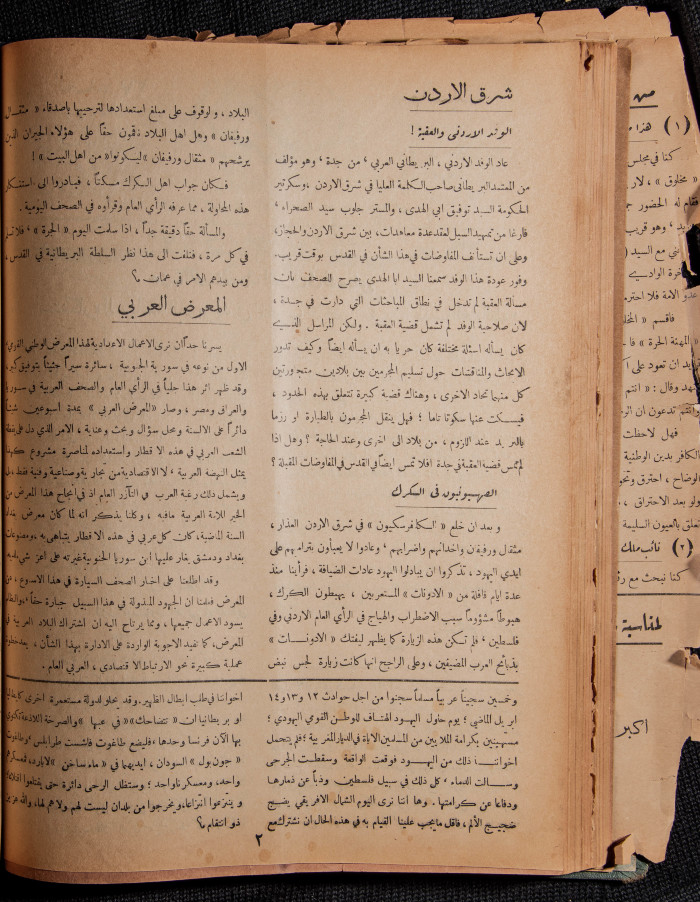 شرق الاردن
الوفد الاردني والعقبة !
عاد الوفد الاردني ، البريطاني العربي ، من جدة ، وهو مؤلف
من المعتمد البريطاني صاحب الكلمة العليا في شرق الاردن ، وسكرتير
الحكومة السيد توفيق ابي الهدى ، والمستر جلوب سيد الصحراء ،
فارغا من تمهيد السبل لعقد عدة معاهدات ، بين شرق الاردن والحجاز ،
وعلى ان تستأنف المفاوضات في هذا الشأن في القدس بوقت قريب .
وفور عودة هذا الوفد سمعنا السيد ابا الهدى يصرح للصحف بان
مسألة العقبة لم تدخل في نطاق المباحثات التي دارت في جدة ،
لان صلاحية الوفد لم تشمل قضية العقبة . ولكن المراسل الذي
كان يسأله اسئلة مختلفة كان حريا به ان يسأله ايضاً وكيف تدور
الابحاث والمناقشات حول تسليم المجرمين بين بلادين متجاورتين
كل منهما تحاد الاخرى ، وهناك قضية كبيرة تتعلق بهذه الحدود ،
فيسكت عنها سكوتا تاما ؛ فهل ينقل المجرمون بالطيارة او رزما
بالبريد عند اللزوم ، من بلاد الى اخرى وعند الحاجة ؟ وهل اذا
لم تمس قضية العقبة في جدة افلا تمس ايضاً في القدس في المفاوضات المقبلة ؟
الصهيونيون في الكرك
وبعد ان خلع « الكافرسكيون » في شرق الاردن العذار ،
مثقال ورفيفان واخدانهم واضرابهم ، وعادوا لا يعبأون بتراميهم على
ايدي اليهود ، تذكروا ان يبادلوا اليهود عادات الضيافة ، فرأينا منذ
عدة ايام قافلة من « الادونات » المستعربين ، يهبطون الكرك ،
هبوطاً مشؤوماً سبب الاضطراب والهياج في الرأي العام الاردني وفي
فلسطين ، فلم تكن هذه الزيارة كما يظهر ليفتك « الادونات »
بذبائح العرب المضيفين ، وعلى الراجح انها كانت زيارة لجس نبض
البلاد ، ولوقوف على مبلغ استعدادها لترحيبها باصدقاء « مثقال
ورفيفان » وهل اهل البلاد ناقمون حقاً على هؤلاء الجيران الذين
يرشحهم « مثقال ورفيفان » ليكونوا « من اهل البيت » !
فكان جواب اهل الكرك مسكتاً ، فبادروا الى استنكار
هذه المحاولة ، مما عرفه الرأي العام وقرأوه في الصحف اليومية .
والمسألة حقاً دقيقة جداً ، اذا سلمت اليوم « الجرة » ، فلا تسلم
في كل مرة ، فنلفت الى هذا نظر السلطة البريطانية في القدس ،
ومن بيدهم الامر في عمان . ؟
المعرض العربي
يسرنا جداً ان نرى الاعمال الاعدادية لهذا المعرض الوطني القومي
الاول من نوعه في سورية الجنوبية ، سائرة سيراً حثيثاً بتوفيق كبير ،
وقد ظهر اثر هذا جلياً في الرأي العام والصحف العربية في سوريا
والعراق ومصر ، وصار « المعرض العربي » بمدة اسبوعين شيئاً
دائراً على الالسنة ومحل سؤال وبحث وعناية ، الامر الذي دل على يقظة
الشعب العربي في هذه الاقطار واستعداده لمناصرة مشروع كهذا
يمثل النهضة العربية ، لا الاقتصادية من تجارية وصناعية وفنية فقط ،
ويشمل ذلك رغبة العرب في التآزر العام اذ في انجاح هذا المعرض من
الخير للامة العربية مافيه ، وكلنا يذكر انه لما كان معرض بغداد
السنة الماضية ، كان كل عربي في هذه الاقطار يتباهى به ،
بغداد ودمشق يغار عليها ابن سوريا الجنوبية غيرته على اعز شيء لديه .
وقد اطلعنا على اخبار الصحف السيارة في هذا الاسبوع ، عن
المعرض فعلمنا ان الجهود المبذولة في هذا السبيل جبارة حقاً ،
يسود الاعمال جميعها ، ومما يرتاح اليه ان اشتراك البلاد العربية في
المعرض ، كما تفيد الاجوبة الواردة على الادارة بهذا الشأن ، يعد خطوة
عملية كبيرة نحو الارتباط الاقتصادي ، العربي العام .
وخمسين سجيناً عربياً مسلماً سجنوا من اجل حوادث ١٢ و١٣ و١٤
ابريل الماضي ؛ يوم حاول اليهود الهتاف للوطن القومي اليهودي ؛
مستهينين بكرامة الملايين من المسلمين الاباة في الديار المغربية ؛ فلم يتحمل
اخواننا ذلك من اليهود فوقعت الواقعة وسقطت الجرحى
وسالت الدماء ، كل ذلك في سبيل فلسطين وذباً عن ذمارها
ودفاعا عن كرامتها . وها اننا نرى اليوم الشمال الافريقي يضج
ضجيج الألم ، فاقل ما يجب علينا القيام به في هذه الحال ان نشترك مع
اخواننا في طلب ابطال الظهير . وقد يحلو لدولة مستعمرة اخرى كايطاليا
او بريطانيا ان « تتضاحك » « في عبها » والصرخة اللاذعة تكوى
بها الآن فرنسا وحدها ، فليضع طاغوت فاشست طرابلس ، وطاغوت
« جون بول » السودان ، ايديهما في « ماء ساخن » لا بارد ، فمعسكرهم
واحد ، ومعسكرنا واحد ؛ وستظل الرحى دائرة حتى يقتلعوا اقتلاعا
وينتزعوا انتزاعا ، ويخرجوا من بلدان ليست لهم ولا هم لها ، والله عزيز
ذو انتقام . ؟
٢
من
(١) هذا
كنا في مجلس
« مخلوق » ، لار
فقام له الحضور
« وهو قريب
عدو الامة فلا احترم
فاقسم « المخلو
« المهنة الحرة » فا
يد ان تعود على ا
هد وقال : « انتم
وانتم تدعون ان الو
فهل لاحظت
الكافر بدين الوطنية
الوضاح ، احترق وتحو
ولو بعد الاحتراق ،
تعلق بالعيون السليمة
(٢) نائب ملك
كنا نبحث مع رف
لمناسبة
اكبر